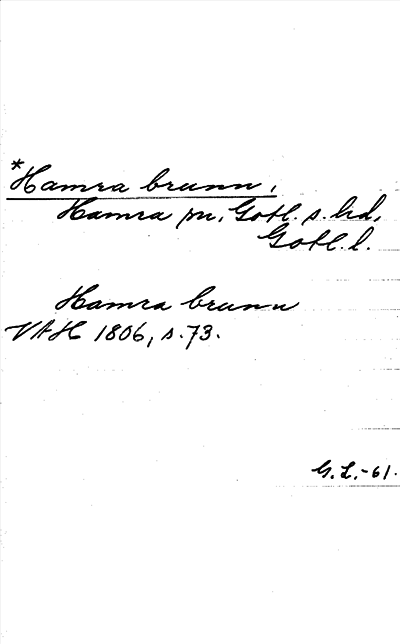 *Hamra brunn,
Hamra sn, Gotl. s. hd,
Gotl. l.
Hamra brunn
VAH 1806, s. 73.
G. L. -61.